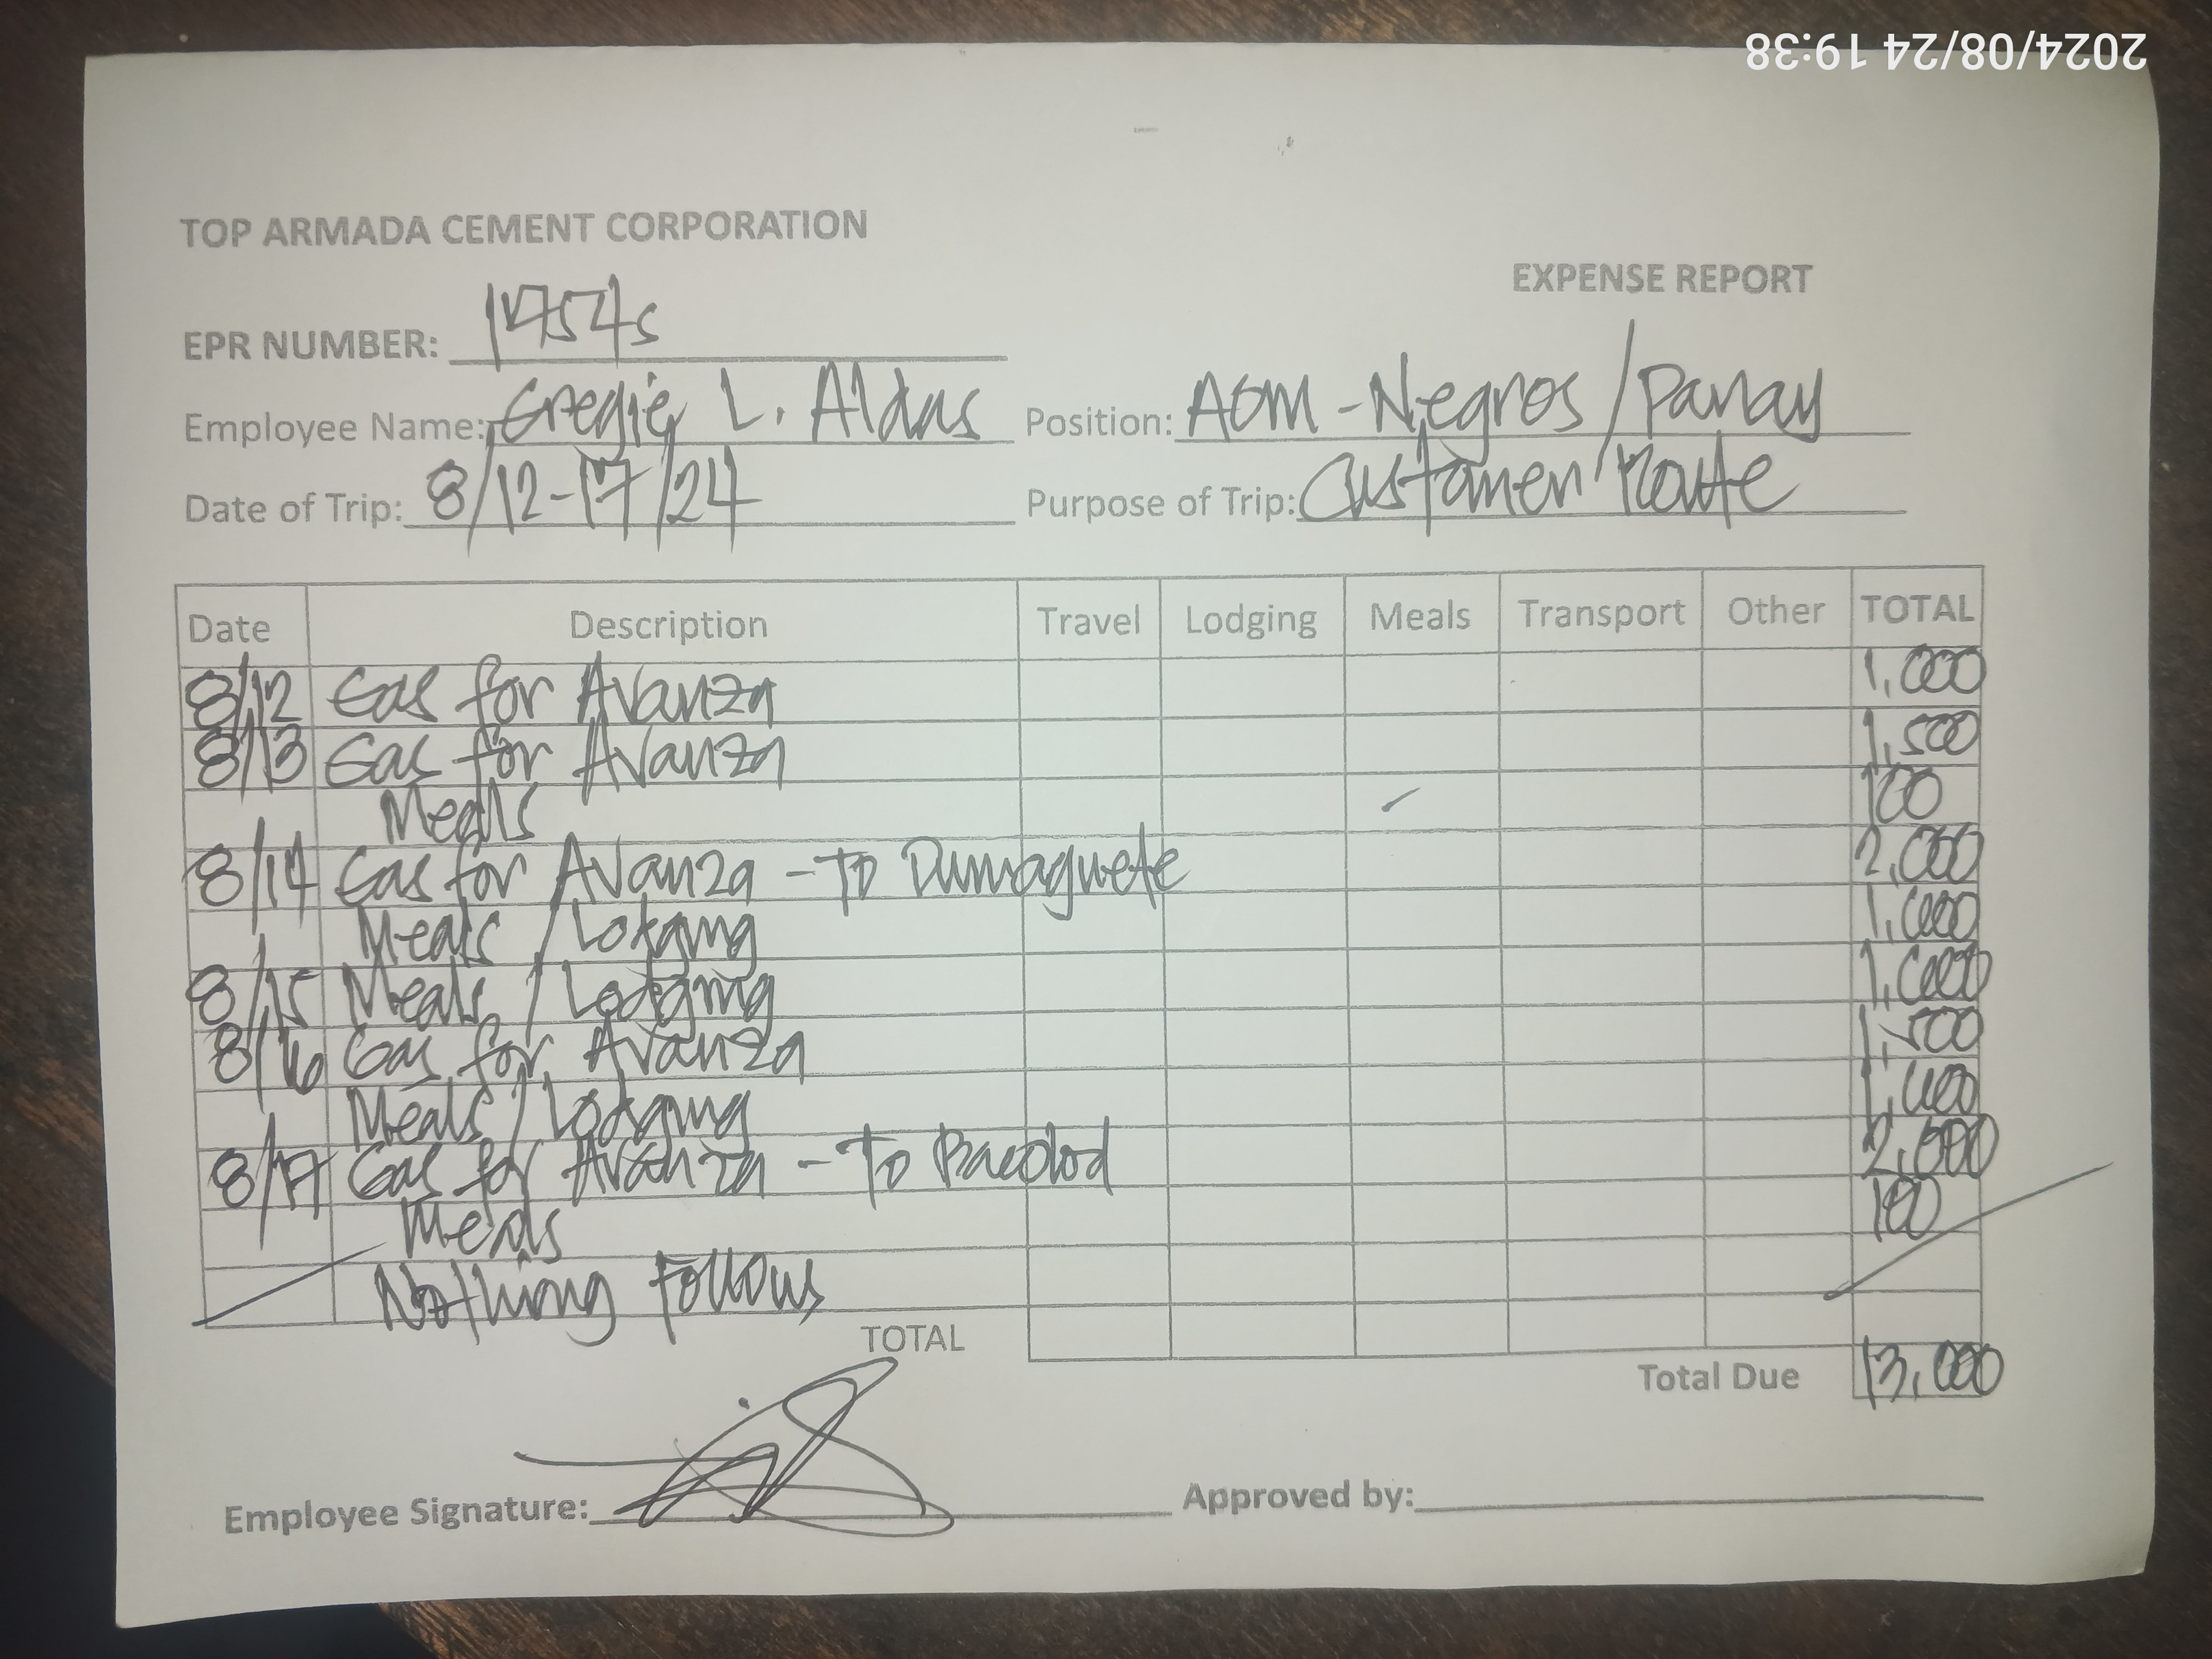 2024/08/24 19:38
TOP ARMADA CEMENT CORPORATION
EXPENSE REPORT
EPR NUMBER: 17545
Employee Name: Gregie L. Aldas Position: AOM - Negros / Panay
Date of Trip: 8/12-17/24 Purpose of Trip: Customer Route
Date Description Travel Lodging Meals Transport Other TOTAL
8/12 Gas for Avanza 1,000
8/13 Gas for Avanza 1,500
Meals 100
8/14 Gas for Avanza - To Dumaguete 2,000
Meals / Lodging 1,000
8/15 Meals / Lodging 1,000
8/16 Gas for Avanza 1,500
Meals / Lodging
8/17 Gas for Avanza - To Bacolod
Meals 100
Nothing Follows
TOTAL
Total Due 13,000
Employee Signature: Approved by: